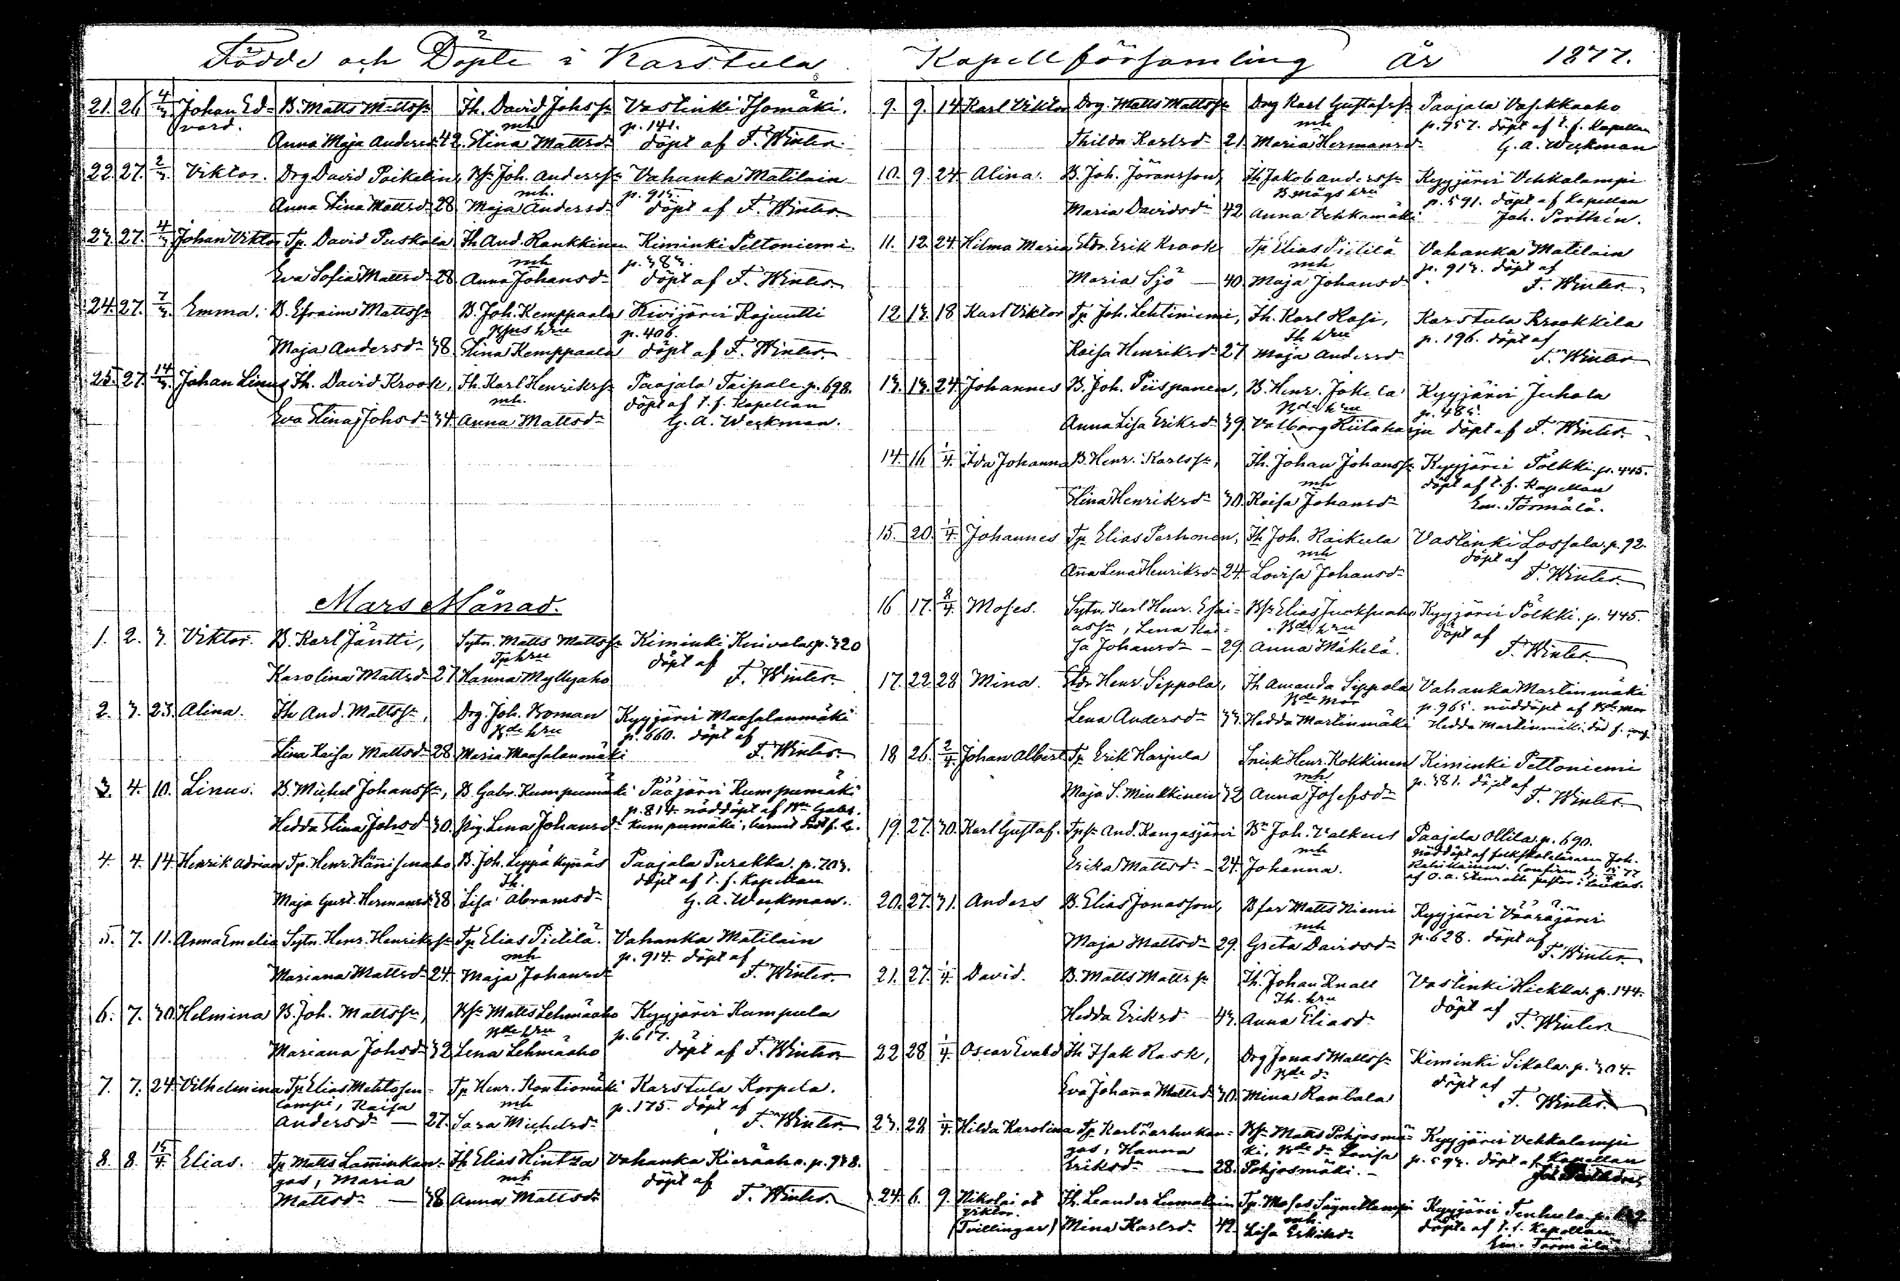 Födde och Döpte i Karstula
21. 26. 4/3 Johan Ed- B. Matts Mattss. Th. David Johss. Vastinki Isomäki.
vard. mh p. 141.
Anna Maja Andersd. 42. Stina Mattsd. döpt af F. Winter.
22. 27. 2/3 Viktor. Drg David Poikelin, Bs. Joh. Anderss. Vahanka Matilain
mh. p. 915.
Anna Stina Mattsd. 28. Maja Andersd. döpt af F. Winter
23. 27. 4/3 Johan Viktor Tp. David Puskala Th And. Rankkinen Kiminki Peltoniemi
mh p. 383.
Eva Sofia Mattsd. 28. Anna Johansd. döpt af F. Winter
24. 27. 7/3 Emma. B. Efraim Mattss. B. Joh. Kemppaala Kivijärvi Rajuntti
hru p. 406.
Maja Andersd. 38 Stina Kemppaala döpt af F. Winter.
25. 27. 14/3 Johan Linus Th. David Krook, Th. Karl Henrikss. Paajala Taipale p. 698.
mh. döpt af t. f. Kapellan
Eva Stina Johsd. 34 Anna Mattsd. G. A. Weckman.
Mars Månad.
1. 2. 3. Viktor. B. Karl Jäntti, Sytn. Matts Mattss. Kiminki Knivala p. 320
Tp hru döpt af
Karolina Mattsd. 27 Hanna Myllyaho F. Winter.
2. 3. 23. Alina. Th And. Mattss., Drg. Joh. Roman Kyyjärvi Maasalanmäki
Bde hru p. 660. döpt af
Stina Kaisa Mattsd. 28 Maria Maasalanmäki F. Winter.
3. 4. 10. Linus. B. Michel Johanss., B. Gabr. Kumpumäki Pääjärvi Kumpumäki
p. 814. nöddöpt af Bn Gabr.
Hedda Stina Johsd. 30. Pig. Lena Johansd. Kumpumäki,
4. 4. 14 Henrik Adrian Tp. Henr. Hännisenaho B. Joh. Leppäkynnäs Paajala Purakka. p. 703.
Th. döpt af t. f. Kapellan
Maja Gust. Hermansd. 38 Lisa Abramsd. G. A. Weckman.
5. 7. 11. Anna Emelia Sytn. Henr. Henrikss. Tp. Elias Pietilä. Vahanka Matilain
mh p. 914. döpt af
Mariana Mattsd. 24. Maja Johansd. F. Winter.
6. 7. 30. Helmina B. Joh. Mattss., Bs. Matts Lehmäaho Kyyjärvi Kumpula
Bde hru p. 617.
Mariana Johsd. 32 Lena Lehmäaho döpt af F. Winter
7. 7. 24. Vilhelmina Tp Elias Mehtosen- Tp. Henr. Kontiomäki Karstula Korpela.
lampi, Kaisa mh p. 175. döpt af
Andersd. — 27. Sara Michelsd. F. Winter.
8. 8 15/4. Elias. Tp. Matts Lamminkan- Th Elias Hintza Vahanka Kieräaho p. 938.
gas, Maria mh döpt af
Mattsd. — 38 Anna Mattsd. F. Winter.
Kapellförsamling År 1877.
9. 9. 14 Karl Viktor Drg. Matts Mattss. Drg Karl Gustafss. Paajala Vasikkaaho
mh p. 757. döpt af t. f. Kapellan
Thilda Karlsd. 21. Maria Hermansd. G. A. Weckman
10. 9. 24. Alina. B. Joh. Jöransson, Th Jakob Anderss. Kyyjärvi Vehkalampi
B. mågs hru p. 591. döpt af Kapellan
Maria Davidsd. 42 Anna Vehkamäki Joh. Porthén.
11. 12. 24. Hilma Maria Erik Krook Tp Elias Pietilä Vahanka Matilain
mh. p. 913. döpt af
Maria Sjö — 40. Maja Johansd. F. Winter.
12. 13. 18 Karl Viktor Tp. Joh. Lehtiniemi, Th. Karl Hasi, Karstula Krookkila
Th hru p. 196. döpt af
Kaisa Henriksd. 27 Maja Andersd. F. Winter
13. 13. 24. Johannes B. Joh. Piispanen, B. Henr. Jokela Kyyjärvi Juhola
Bde hru p. 485.
Anna Lisa Eriksd. 39. Valborg Hiitaharju döpt af F. Winter.
14. 16 1/4. Ida Johanna B. Henr. Karlss., Th. Johan Johanss. Kyyjärvi Pölkki p. 445.
mh döpt af t. f. Kapellan
Stina Henriksd. 30. Kaisa Johansd. Em. Törmälä.
15. 20. 1/4 Johannes Tp. Elias Parhonen, Th Joh. Raikula Vastinki Lossala p. 92.
mh döpt af
Anna Lena Henriksd. 24. Lovisa Johansd. F. Winter.
16 17. 8/4. Moses. Sytn. Karl Henr. Esai- Bs. Elias Juokseaho Kyyjärvi Pölkki p. 445.
ass., Lena Kai- Bde hru döpt af
sa Johansd. — 29. Anna Mäkelä. F. Winter.
17. 22. 28 Mina. Henr. Sippola, Th Amanda Sippola Vahanka Martinmäki
Bde mor p. 965. nöddöpt af Bde mor
Lena Andersd. 33. Hedda Martinmäki Hedda Martinmäki,
18 26. 2/4. Johan Albert Tp. Erik Harjula Snick Henr. Kokkinen Kiminki Peltoniemi
mh p. 381. döpt af
Maja S. Minkkinen 32 Anna Josefsd. F. Winter.
19. 27. 30. Karl Gustaf. Tps. And. Kangasjärvi Bn Joh. Valkeus Paajala Ollila p. 690.
mh nöddöpt af folkskoleläraren Joh.
Erika Mattsd. — 24. Johanna.
20. 27. 31. Anders B. Elias Jonasson, B far Matts Niemi Kyyjärvi Vääräjärvi
mh p. 628. döpt af
Maja Mattsd. 29. Greta Davidsd. F. Winter.
21. 27. 1/4 David. B. Matts Mattss. Th. Johan Knall Vastinki Hiekka p. 144.
Th. hru döpt af
Hedda Eriksd. 43. Anna Eliasd. F. Winter
22 28 1/4. Oscar Evald Th Isak Rask, Drg Jonas Mattss. Kiminki Sikala p. 304.
Bde dr döpt af
Eva Johanna Mattsd. 30. Mina Rantala F. Winter.
23. 28 1/4. Hilda Karolina Tp. Karl Aarhukan- Bs. Matts Pohjosmä- Kyyjärvi Vehkalampi
gas, Hanna ki, Bde dr Lovisa p. 593. döpt af Kapellan
Eriksd. — 28. Pohjosmäki. —
24. 6. 9. Nikolai o Th. Leander Lumalain Tp. Moses Säynetlampi Kyyjärvi Tenhula p.
Viktor. mh. döpte af t. f. Kapellan
(Tvillingar) Mina Karlsd. 42. Lisa Eriksd. Em. Törmälä.